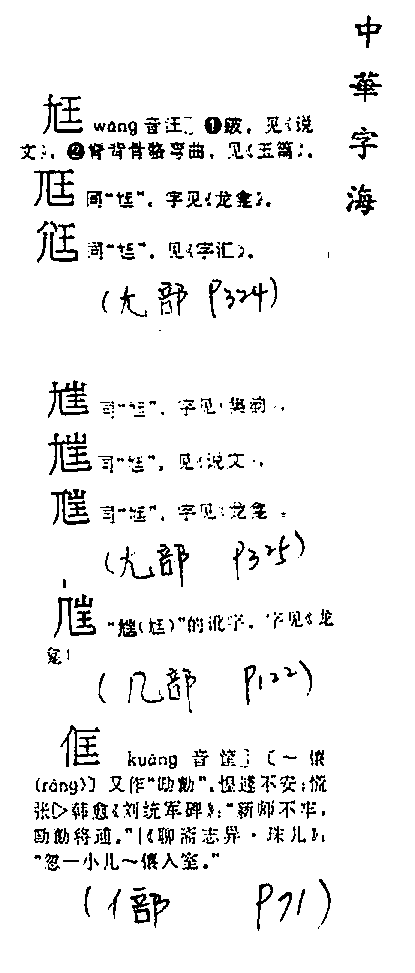 中華字海
尪 wāng 音汪〕❶跛，见《说
文》。❷脊背骨骼弯曲，见《玉篇》。
同“尪”，字见《龙龛》。
同“尪”，见《字汇》。
(尢部 P324)
同“尪”，字见《集韵》。
尩 同“尪”，见《说文》。
同“尪”，字见《龙龛》。
(尢部 P325)
“尩(尪)”的讹字，字见《龙
龛》
(几部 P122)
俇 kuāng 音筐〕〔～儴
(ráng)〕又作“劻勷”，惶遽不安；慌
张▷韩愈《刘统军碑》：“新师不牢，
劻勷将逋。”|《聊斋志异·珠儿》：
“忽一小儿～儴入室。”
(亻部 P71)